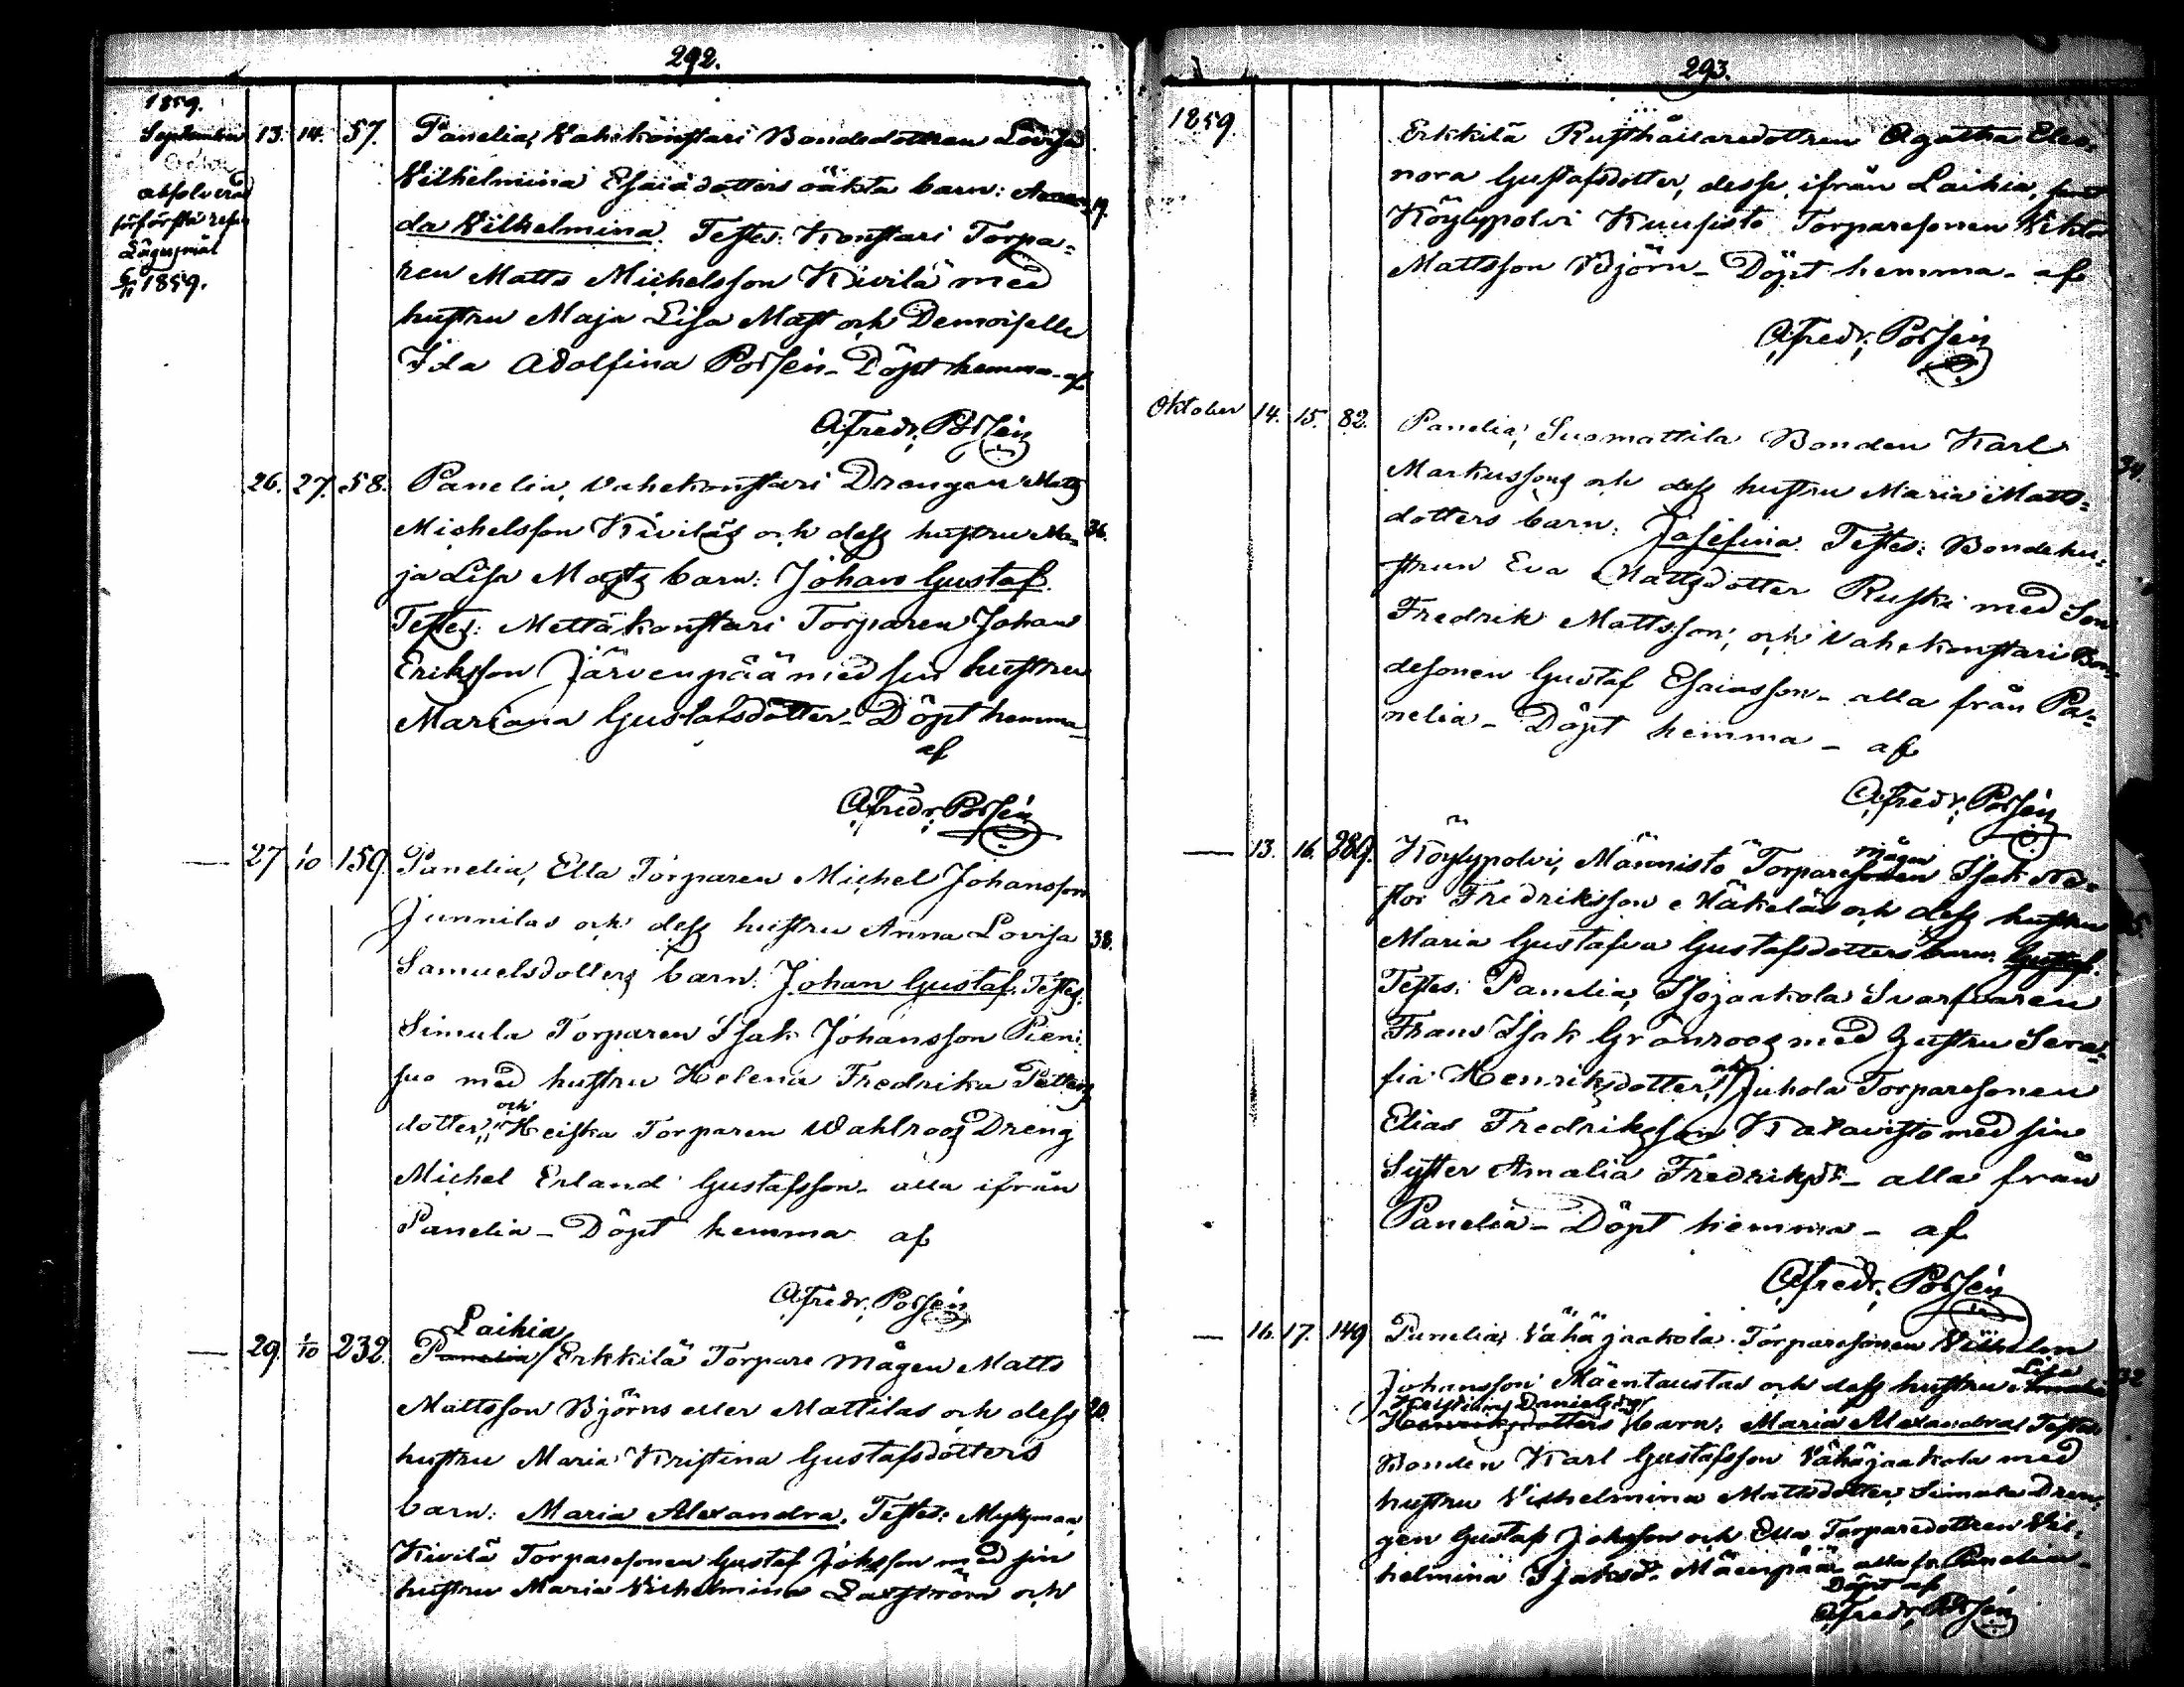 292.
1859.
September 13. 14. 57. Panelia, Vahekonstari Bondedottren Lovisa
Vilhelmina Esaiædotters oäkta barn: Aman= 19.
da Vilhelmina. Testes: Konstari Torpa=
ren Matts Michelsson Kivilä med
hustru Maja Lisa Matst och Demoiselle
Ida Adolfina Polsén - Döpt hemma - af
absolverad
för första resan
Lägersmål
6/11 1859.
A. Fredr. Polsén
26. 27. 58. Panelia, Vahekonstari Drengen Matts
Michelsson Kiviläs och dess hustru Ma= 36.
ja Lisa Matsts barn: Johan Gustaf.
Testes: Mettäkonstari Torparen Johan
Eriksson Järvenpää med sin hustru
Mariana Gustafsdotter - Döpt hemma -
af
A. Fredr. Polsén
— 27 1/10 159. Panelia, Ella Torparen Michel Johansson
Junnilas och dess hustru Anna Lovisa 38.
Samuelsdotters barn: Johan Gustaf. Testes:
Simula Torparen Isak Johansson Pieni=
suo med hustru Helena Fredrika Petters
dotter, och Heiska Torparen Wahlroos Dreng
Michel Erland Gustafsson - alla ifrån
Panelia - Döpt hemma af
A. Fredr. Polsén
Laihia
— 29. 1/10 232. Panelia, Erkkilä Torpare mågen Matts
Mattsson Björns eller Mattilas och dess 20.
hustru Maria Kristina Gustafsdotters
barn: Maria Alexandra. Testes:
Kivilä Torparesonen Gustaf Johsson med sin
hustru Maria Vilhelmina och
293.
1859. Erkkilä Rusthållaredottren Agatha Eleo=
nora Gustafsdotter, desse ifrån Laihia, samt
Köylypolvi Kuusisto Torparesonen Viktor
Mattsson Björn - Döpt hemma - af
A. Fredr. Polsén
Oktober 14. 15. 82. Panelia, Suomattila Bonden Karl
Markussons och dess hustru Maria Matts= 34.
dotters barn: Josefina. Testes: Bondehu=
strun Eva Mattsdotter Ruski med Son
Fredrik Mattsson, och Vahekonstari Bon=
desonen Gustaf Esaiasson - alla från Pa=
nelia - Döpt hemma - af
A. Fredr. Polsén
— 13. 16. 289. Köylypolvi, Männistö Torparesonen mågen Isak Ne=
stor Fredriksson Häkeläs och dess hustru
Maria Gustafva Gustafsdotters barn: Gustaf.
Testes: Panelia, Isojaakola Svarfvaren
Frans Isak Grönroos med hustru Sera=
fia Henriksdotter, och Juhola Torparesonen
Elias Fredriksson Katavisto med sin
Syster Amalia Fredriksdr - alla från
Panelia - Döpt hemma - af
A. Fredr. Polsén
— 16. 17. 149 Panelia, Vähäjaakola Torparesonen Vilhelm
Johansson Mäentaustas och dess hustru Amalia Lisa 32
Kristina Danielsdrs
Henriksdotters barn: Maria Alexandra. Testes:
Bonden Karl Gustafsson Vähäjaakola med
hustru Vilhelmina Mattsdotter, Simula Dren=
gen Gustaf Johsson och Ella Torparedottren Vil=
helmina Isaksdr. Mäenpää alla fr. Panelia -
Döpt af
A. Fredr. Polsén